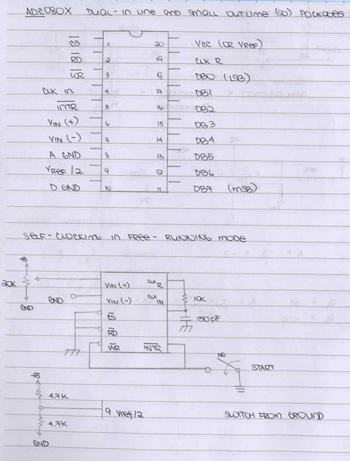 ADC080X DUAL-IN LINE AND SMALL OUTLINE (SO) PACKAGES
CS 1 20 VCC (OR VREF)
RD 2 19 CLK R
WR 3 18 DB0 (LSB)
CLK IN 4 17 DB1
INTR 5 16 DB2
VIN (+) 6 15 DB3
VIN (-) 7 14 DB4
A GND 8 13 DB5
VREF/2 9 12 DB6
D GND 10 11 DB7 (MSB)
SELF-CLOCKING IN FREE-RUNNING MODE
+5
20K
GND
GND
VIN (+) CLK R
VIN (-) CLK IN
CS
RD
WR INTR
10K
150 pF
NO
START
+5
4.7K
9 VREF/2
4.7K
GND
SWITCH FROM GROUND